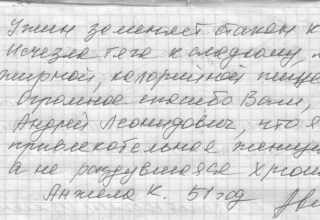 Ужин заменяет стакан к
Исчезла тяга к сладкому,
жирной, калорийной пище
Огромное спасибо Вам,
Андрей Леонидович, что я
привлекательная женщи
а не раздувшаяся хрю
Анжела К. 51 год